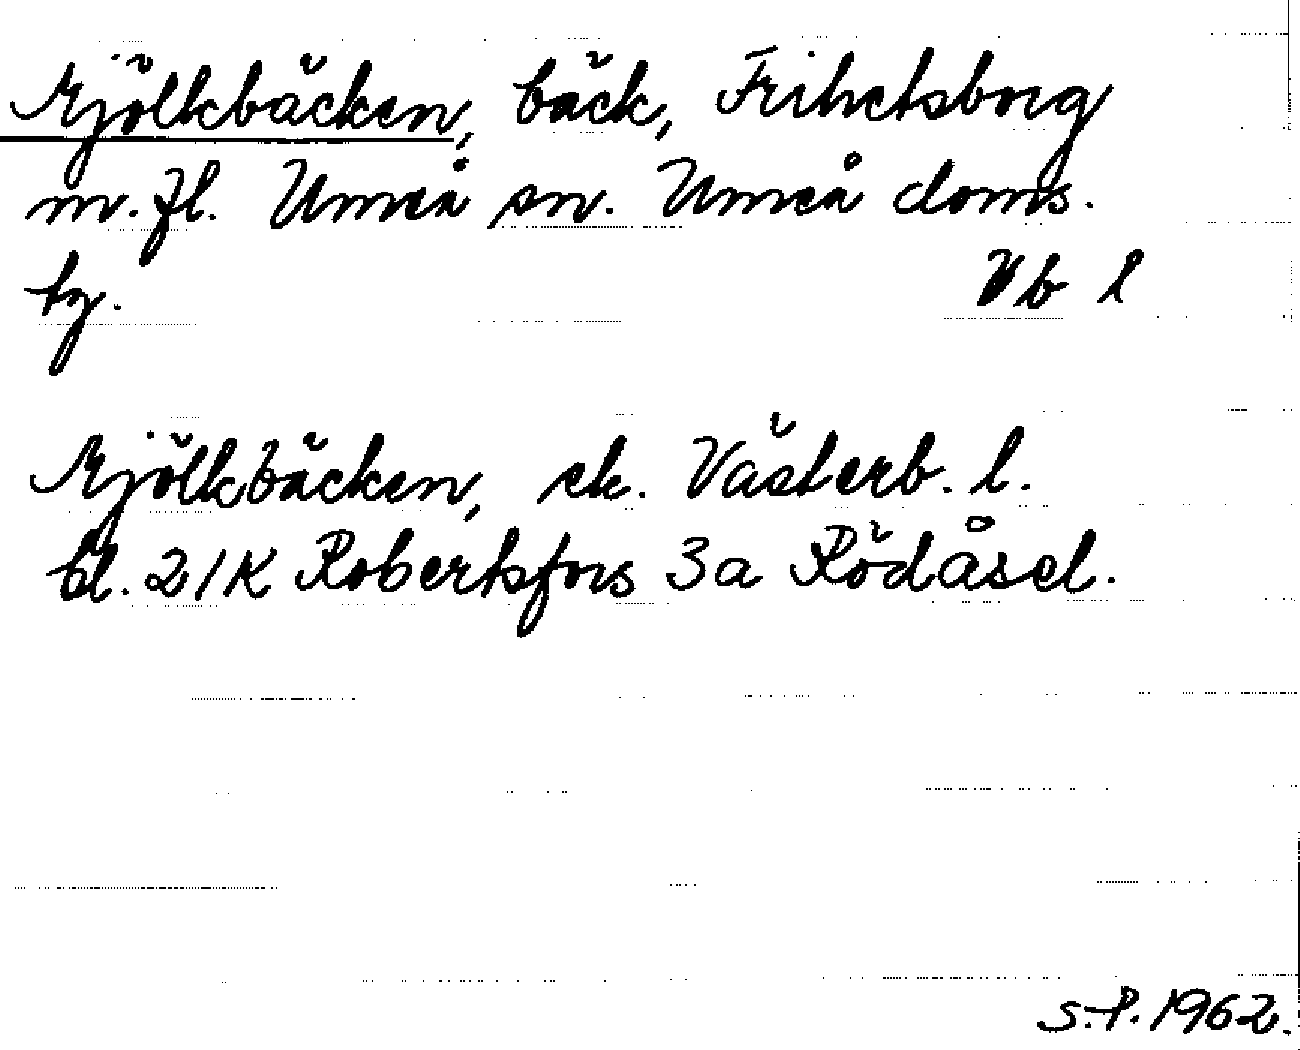 Mjölkbäcken, bäck, Frihetsborg
m. fl. Umeå sn. Umeå doms.
tg. Vb l
Mjölkbäcken, ek. Västerb. l.
bl. 21K Robertsfors 3a Rödåsel.
S.P. 1962.